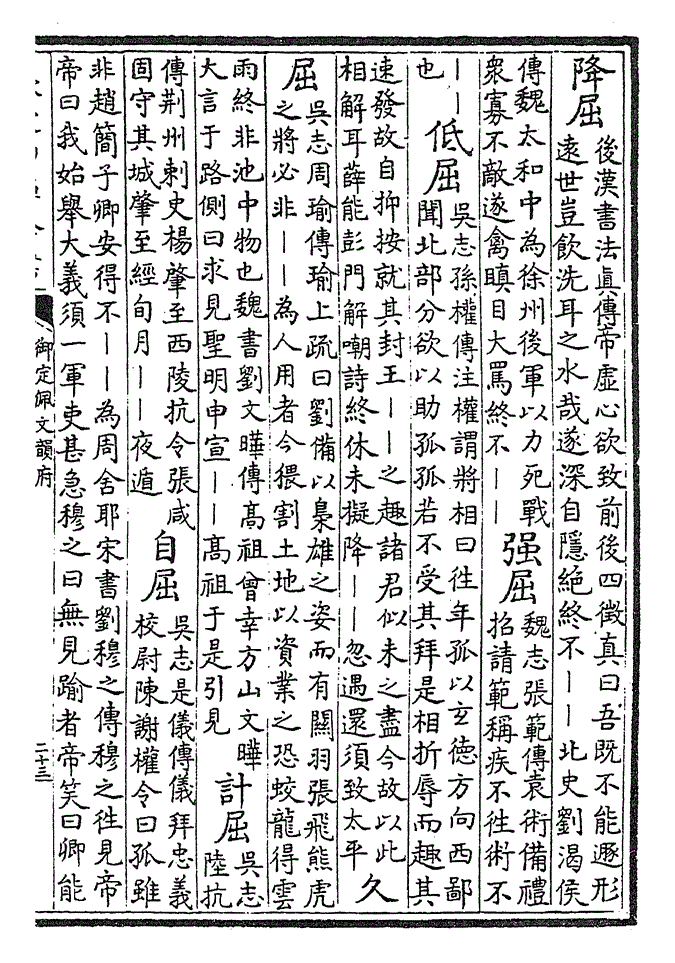 降屈 後漢書法眞傳帝虛心欲致前後四徵真曰吾既不能遯形
遠世豈飲洗耳之水哉遂深自隱絶終不丨丨北史劉渴侯
傳魏太和中為徐州後軍以力死戰
衆寡不敵遂禽瞋目大罵終不丨丨
强屈 魏志張範傳袁術備禮
招請範稱疾不徃術不
丨丨
也
低屈 吳志孫權傳注權謂將相曰徃年孤以玄德方向西鄙
聞北部分欲以助孤孤若不受其拜是相折辱而趣其
速發故自抑按就其封王丨丨之趣諸君似未之盡今故以此
相解耳薛能彭門解嘲詩終休未擬降丨丨忽遇還須致太平
久
屈 吳志周瑜傳瑜上疏曰劉備以梟雄之姿而有關羽張飛熊虎
之將必非丨丨為人用者今猥割土地以資業之恐蛟龍得雲
雨終非池中物也魏書劉文曄傳高祖會幸方山文曄
大言于路側曰求見聖明申宣丨丨高祖于是引見
計屈 吳志
陸抗
傳荆州剌史楊肇至西陵抗令張咸
固守其城肇至經旬月丨丨夜遁
自屈 吳志是儀傳儀拜忠義
校尉陳謝權令曰孤雖
非趙簡子卿安得不丨丨為周舍耶宋書劉穆之傳穆之徃見帝
帝曰我始舉大義須一軍吏甚急穆之曰無見踰者帝笑曰卿能
御定佩文韻府
二十三